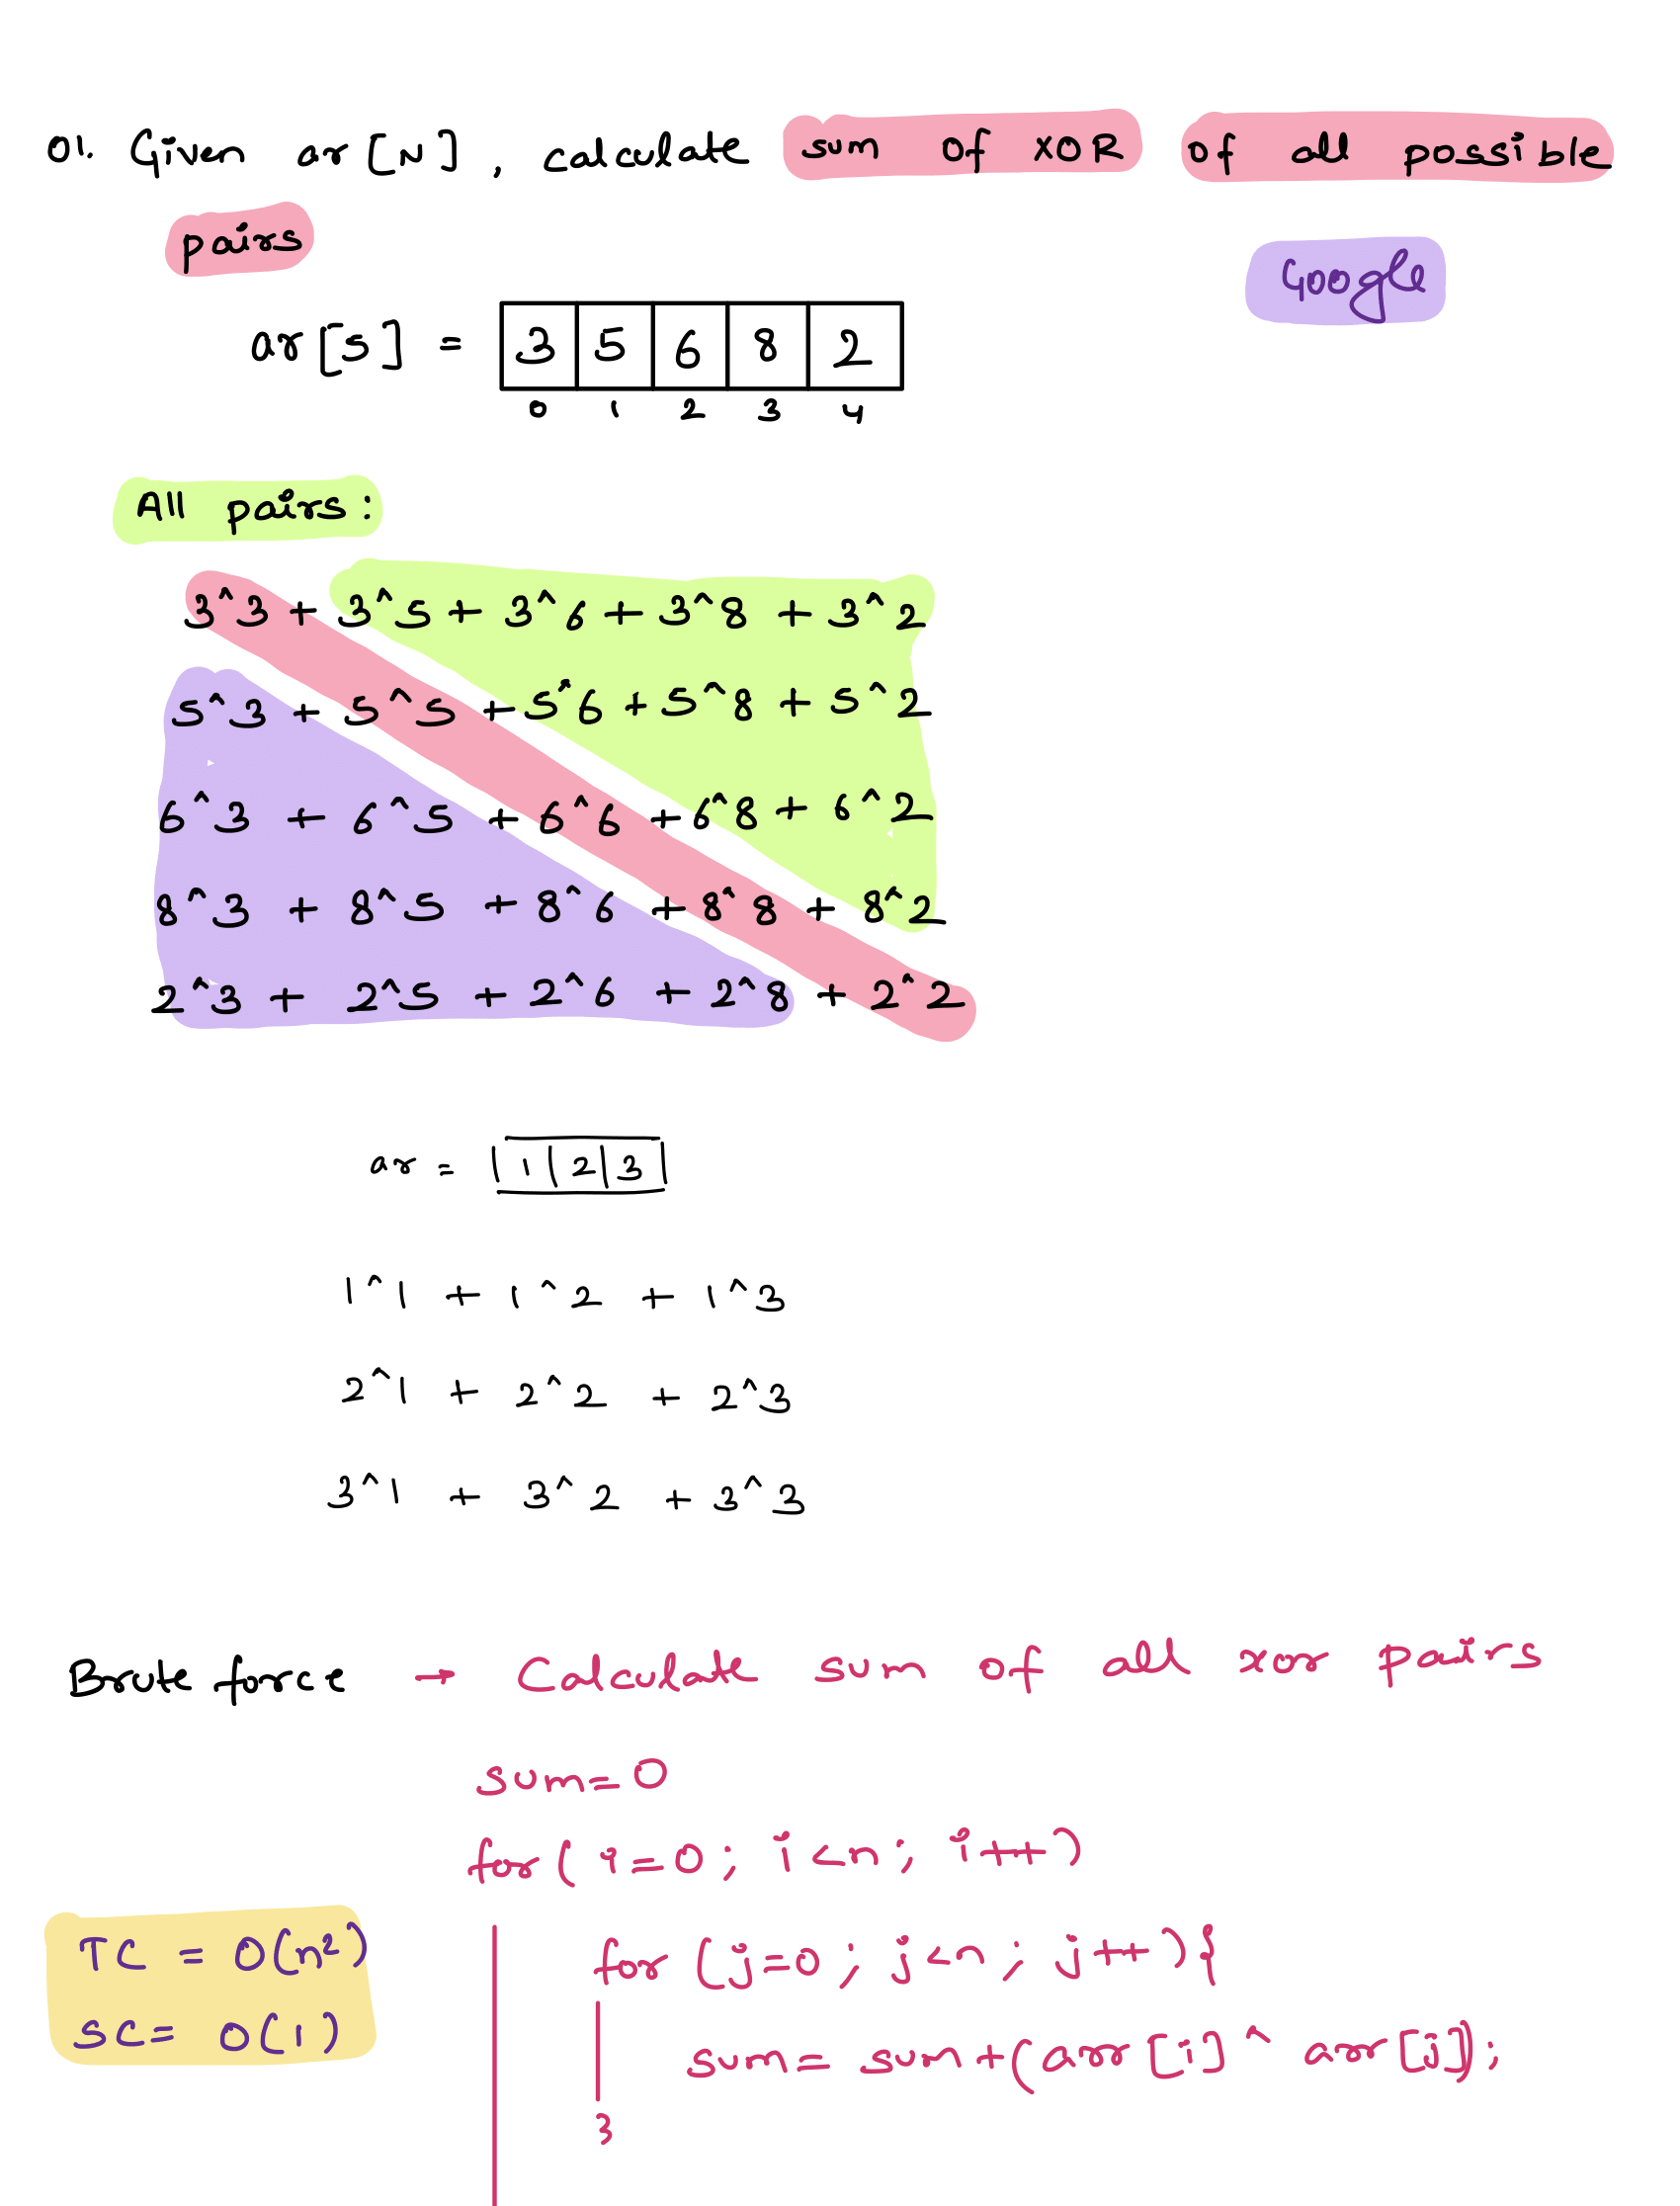 01. Given ar[N], calculate sum of XOR of all possible
pairs
Google
ar[5] = 3 5 6 8 2
0 1 2 3 4
All pairs:
3^3 + 3^5 + 3^6 + 3^8 + 3^2
5^3 + 5^5 + 5^6 + 5^8 + 5^2
6^3 + 6^5 + 6^6 + 6^8 + 6^2
8^3 + 8^5 + 8^6 + 8^8 + 8^2
2^3 + 2^5 + 2^6 + 2^8 + 2^2
ar = |1|2|3|
1^1 + 1^2 + 1^3
2^1 + 2^2 + 2^3
3^1 + 3^2 + 3^3
Brute force → Calculate sum of all xor pairs
sum=0
for( i=0; i<n; i++)
for (j=0; j<n; j++){
sum= sum+(arr[i] ^ arr[j]);
}
TC = O(n²)
SC= O(1)